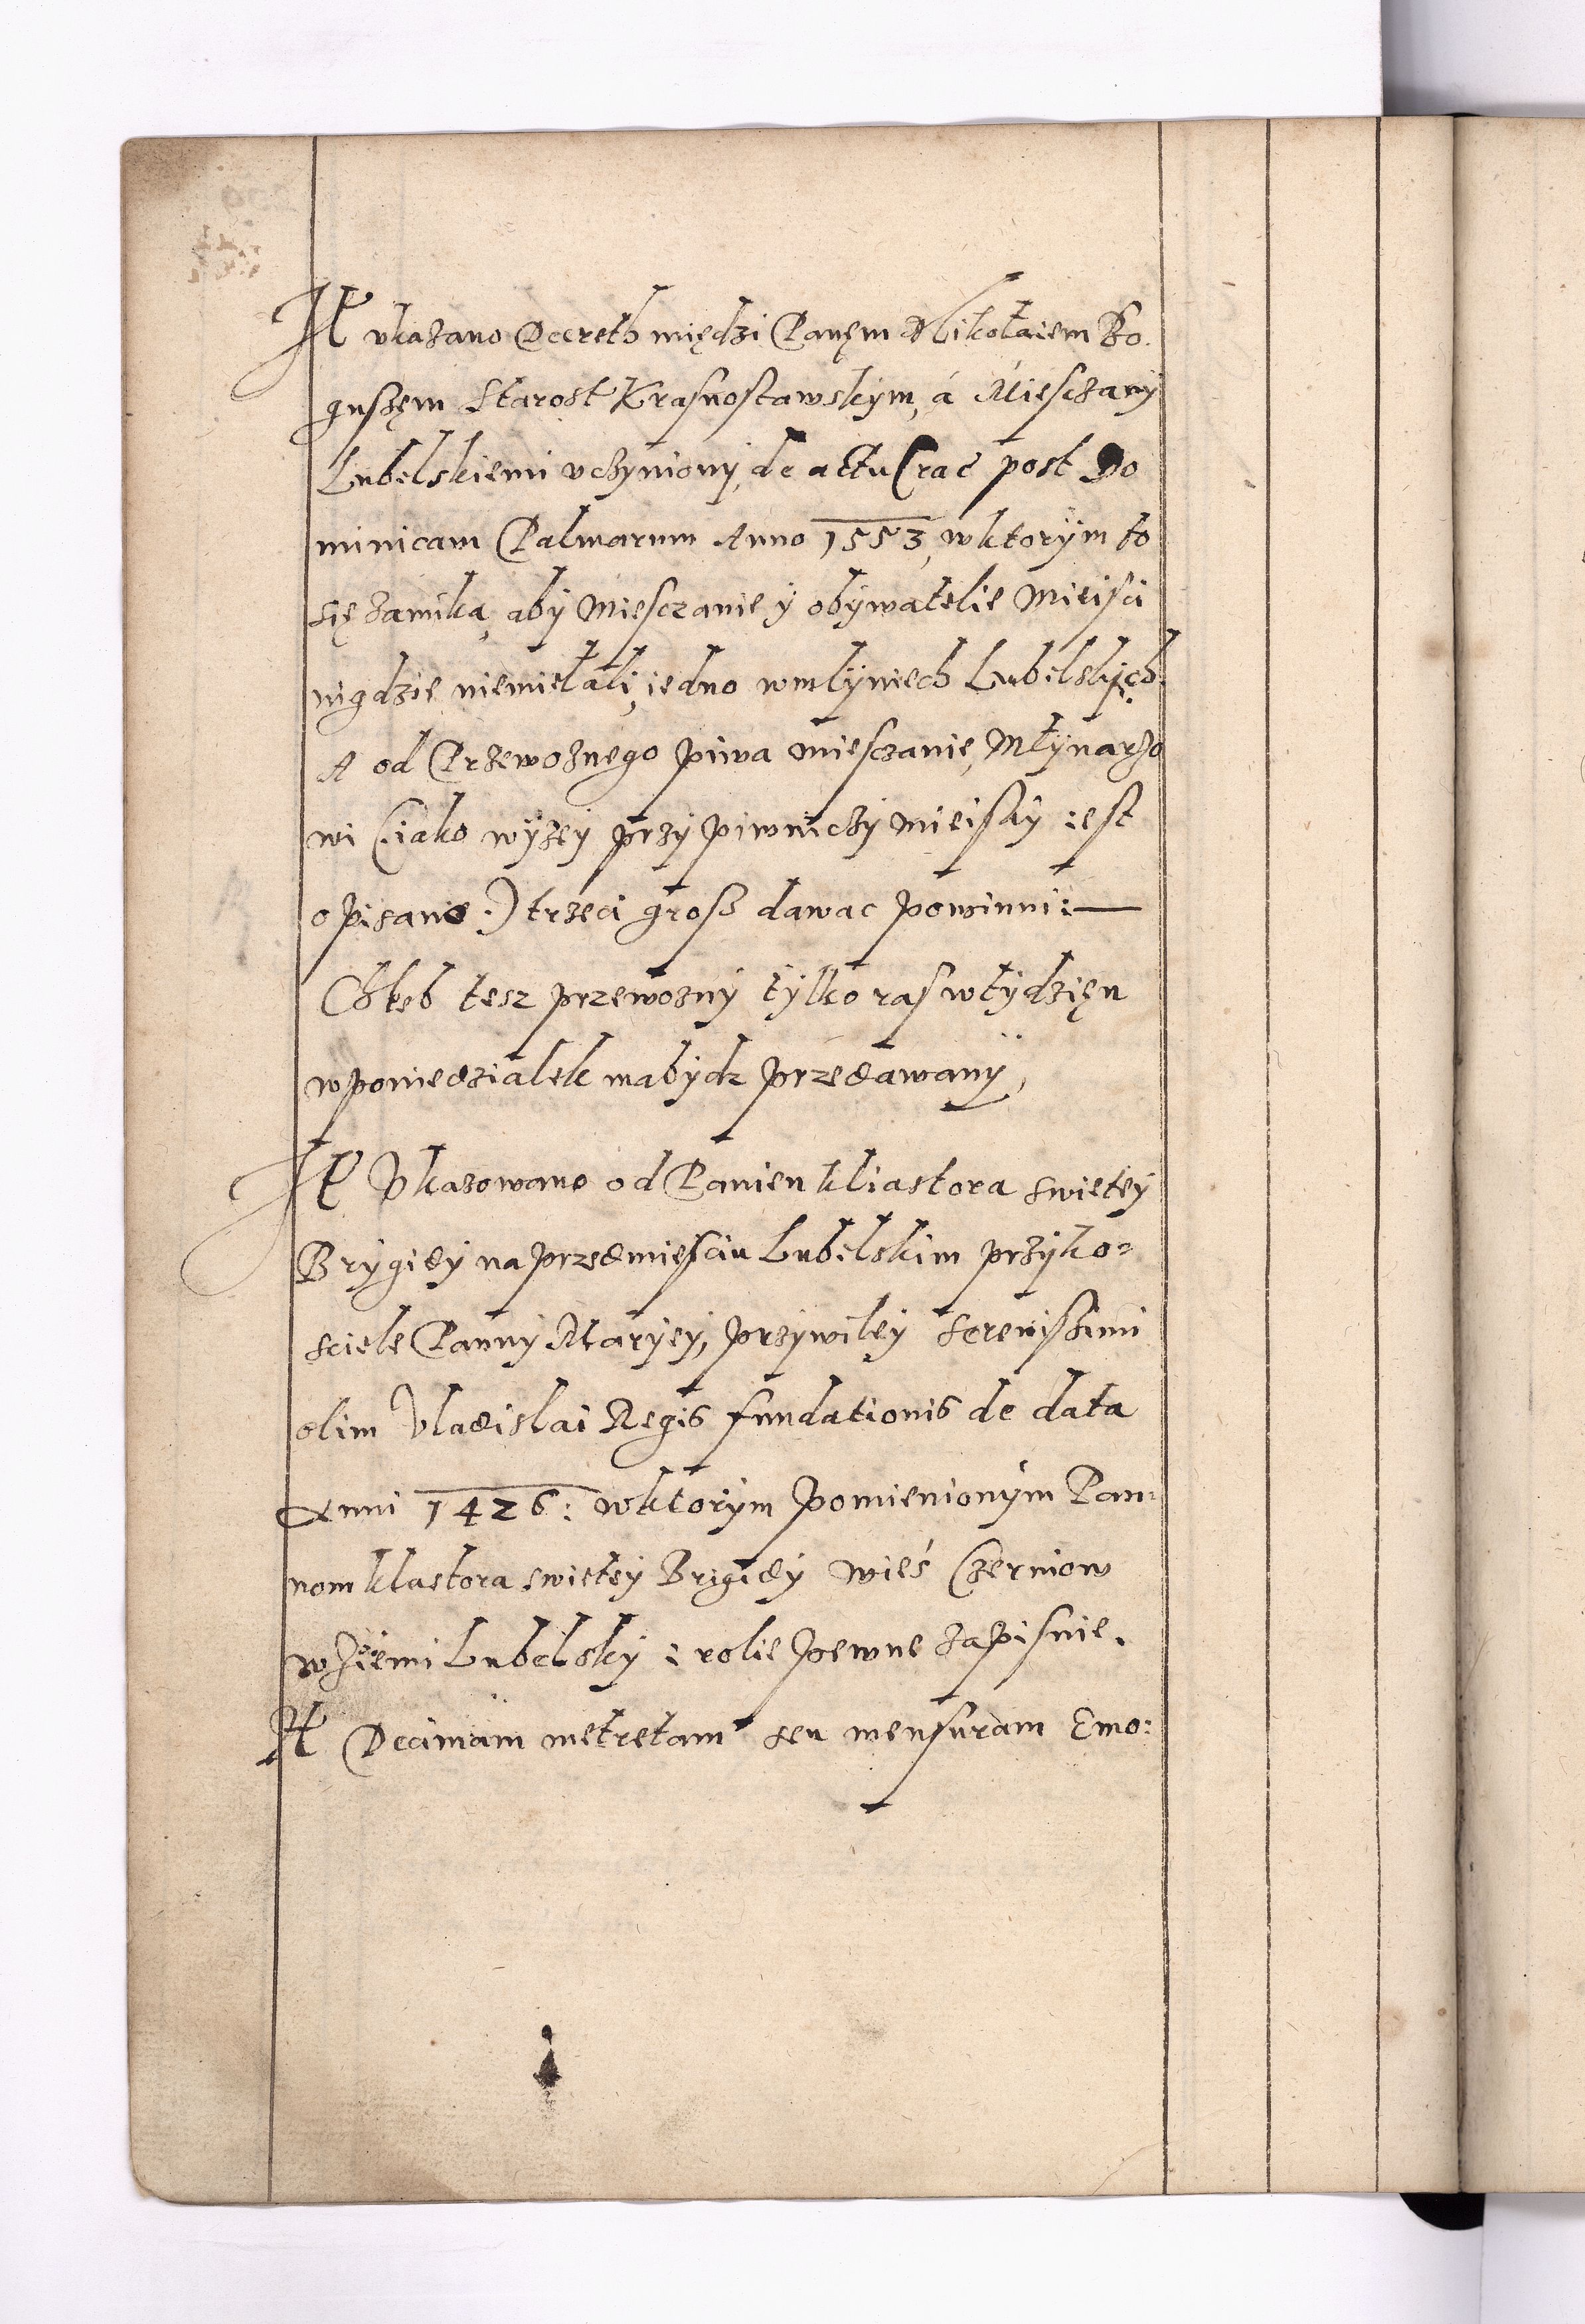 It vkazano Decreth między Panęm Mikołaiem Bo-
guszęm Starost Krasnostawskym, á Miesczany
Lubelskiemi vczyniony, de actu Crac post Do
minicam Palmarum Anno 1553, wktorÿm to
się zamika, aby Miesczanie ÿ obÿwatelie Mieisci
nigdzie niemieláli, iedno wmlÿniech Lubelskÿch.
A od Przewoznego piwa miesczanie, Młÿnarzo
wi (: iako wÿzeÿ przÿ piwniczÿ mieiskÿ iest
opisano :) trzeci grosz dawac powinni :—
Chleb tesz przewoznÿ tÿlko ras wtÿdzięn
wponiedzialek ma bÿdz przedawanÿ,
It Vkazowano od Panien kliastora swieteÿ
Brÿgidÿ naprzedmiesciu Lubelskim przÿko=
sciele Pannÿ Marÿeÿ, przÿwileÿ Serenissimi
olim Vladislai Regis fundationis de data
Anni 1426: wktorÿm pomienionÿm Pan-
nom klastora swieteÿ Brigidÿ wieś Czerniow
wziemi Lubelskÿ i rolie pewne zapisuie.
It Decimam metretam seu mensuram Emo: